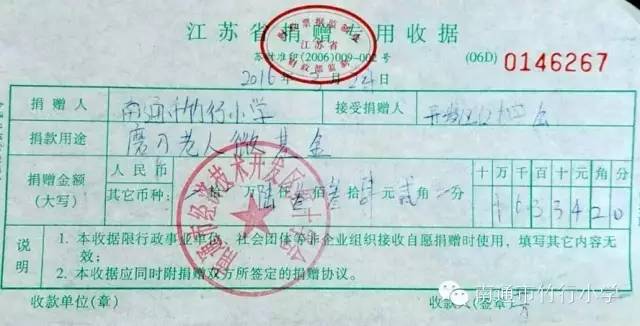 江苏省捐赠专用收据
江苏省
财政部监制
苏财准印(2006)009-002号
(06D) 0146267
2016年3月24日
捐赠人 南通市竹行小学 接受捐赠人
捐款用途 磨刀老人微基金
捐赠金额(大写) 人民币 其它币种: 十万陆仟叁佰叁拾肆元贰角分
十万千百十元角分
633420
说明
1.本收据限行政事业单位、社会团体等非企业组织接收自愿捐赠时使用,填写其它内容无
效;
2.本收据应同时附捐赠双方所签定的捐赠协议。
收款单位(章) 收款人(签章)
南通市竹行小学